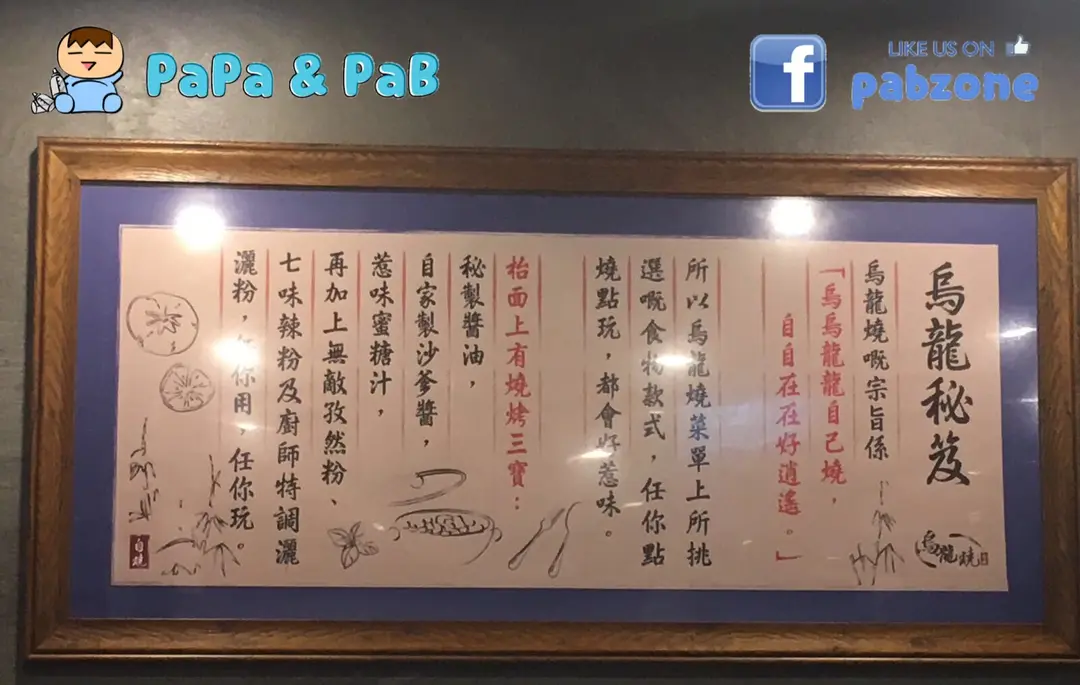 PaPa & PaB
LIKE US ON
pabzone
烏龍秘笈
烏龍燒
烏龍燒嘅宗旨係
「烏烏龍龍自己燒，
自自在在好逍遙。」
所以烏龍燒菜單上所挑
選嘅食物款式，任你點
燒點玩，都會好惹味。
枱面上有燒烤三寶：
秘製醬油，
自家製沙爹醬，
惹味蜜糖汁，
再加上無敵孜然粉、
七味辣粉及廚師特調灑
灑粉，你用，任你玩。
自燒